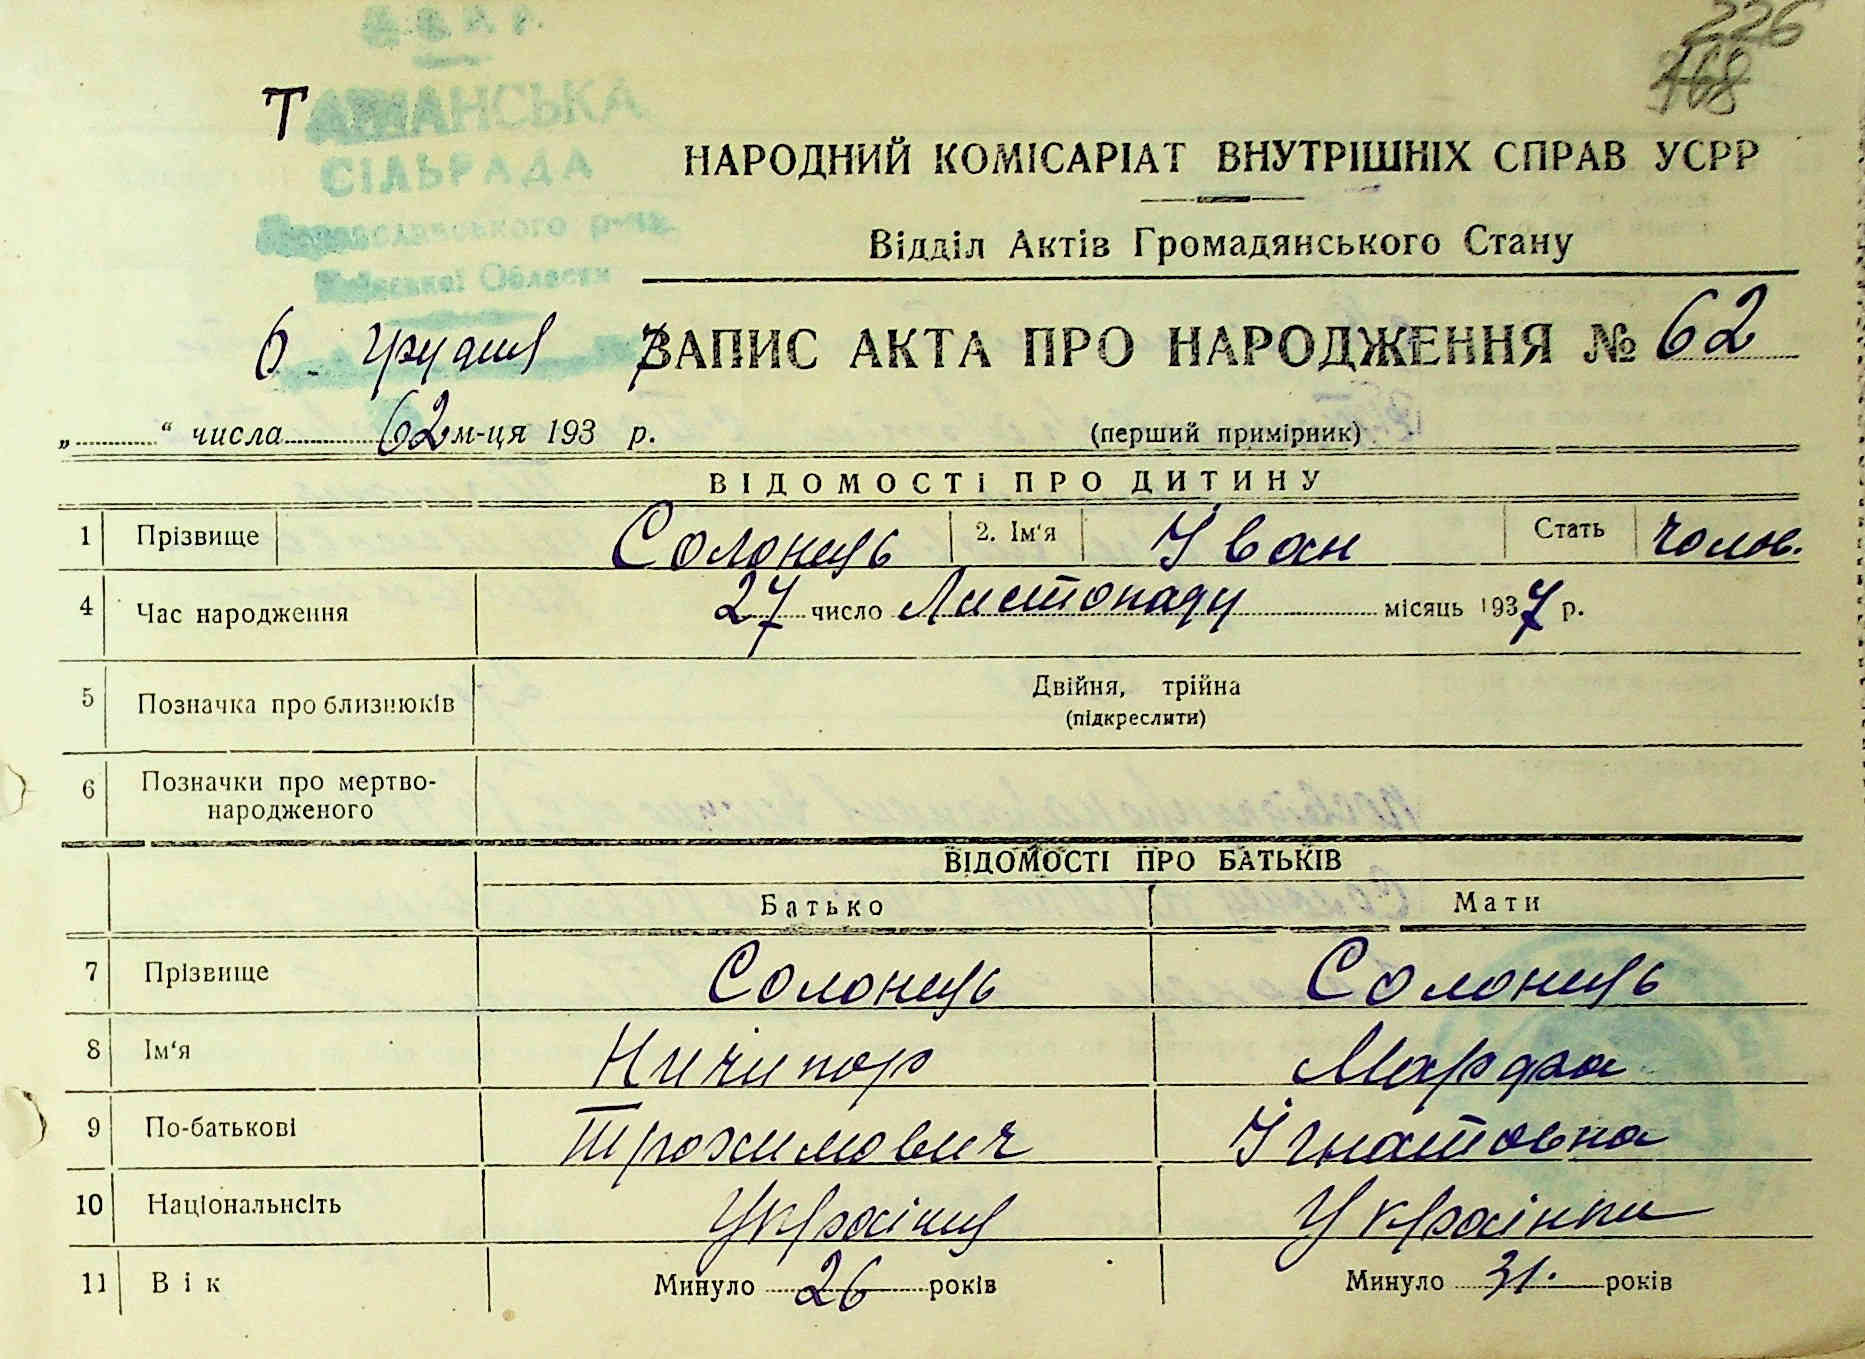 226
468
У С Р Р
ТАШАНСЬКА
СІЛЬРАДА
Переяславського р-ну
Київської Области
НАРОДНИЙ КОМІСАРІАТ ВНУТРІШНІХ СПРАВ УСРР
Відділ Актів Громадянського Стану
6 грудня 7 ЗАПИС АКТА ПРО НАРОДЖЕННЯ № 62
„ “ числа 62 м-ця 193 р. (перший примірник)
ВІДОМОСТІ ПРО ДИТИНУ
1 Прізвище Солонець 2. Ім'я Іван Стать чолов.
4 Час народження 27 число Листопаду місяць 1937 р.
5 Позначка про близнюків Двійня, трійна
(підкреслити)
6 Позначки про мертво-
народженого
ВІДОМОСТІ ПРО БАТЬКІВ
Батько Мати
7 Прізвище Солонець Солонець
8 Ім'я Ничипор Марфа
9 По-батькові Трохимович Ігнатовна
10 Національнсіть Українец Українка
11 Вік Минуло 26 років Минуло 31. років